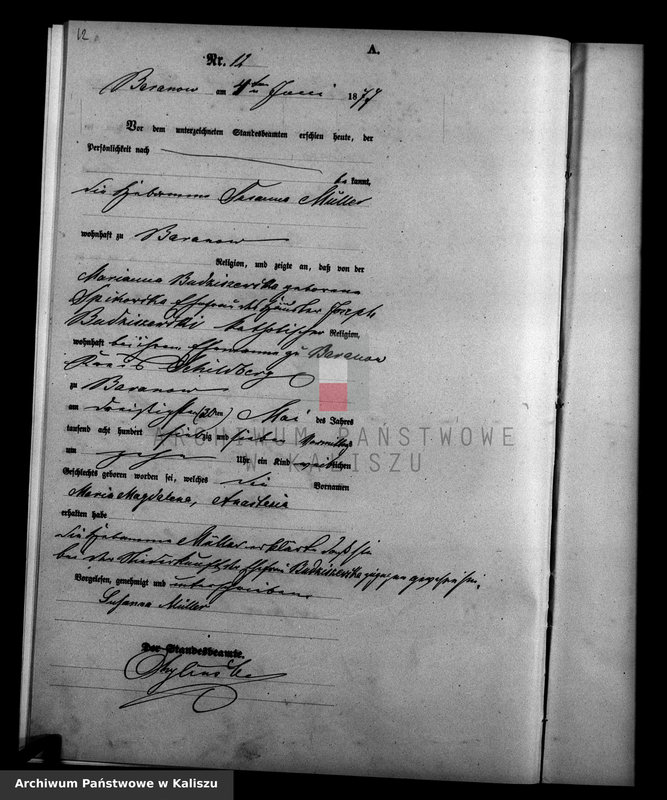 12
A.
Nr. 12
Baranow am 4ten Juni 1877
Vor dem unterzeichneten Standesbeamten erschien heute, der
Persönlichkeit nach
be kannt,
die Hebamme Susanna Müller
wohnhaft zu Baranow
Religion, und zeigte an, daß von der
Marianna Budziszewska geborene
Spikowska Ehefrau des Häusler Joseph
Budziszewski katholischer Religion,
wohnhaft bei ihrem Ehemanne zu Baranow
Kreis Schildberg
zu Baranow
am dreißigsten (30ten) Mai des Jahres
tausend acht hundert siebzig und sieben Vormittag
um zehn Uhr ein Kind weiblichen
Geschlechts geboren worden sei, welches die Vornamen
Maria Magdalena, Anastasia
erhalten habe
die Hebamme Müller erklärt daß sie
bei der Niederkunft der Ehefrau Budziszewska zugegen gewesen sei.
Vorgelesen, genehmigt und unterschrieben
Susanna Müller
Der Standesbeamte.
ARCHIWUM PAŃSTWOWE
W KALISZU
Archiwum Państwowe w Kaliszu